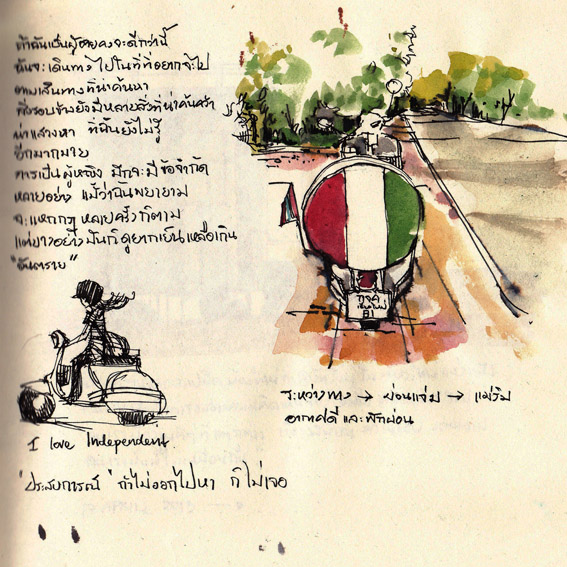 ถ้าฉันเป็นผู้ชายคงจะดีกว่านี้
ฉันจะเดินทางไปในที่ที่อยากจะไป
ตามเส้นทางที่น่าค้นหา
สิ่งรอบข้างยังมีหลายสิ่งที่น่าค้นคว้า
น่าแสวงหา ที่ฉันยังไม่รู้
อีกมากมาย
การเป็นผู้หญิง มักจะมีข้อจำกัด
หลายอย่าง แม้ว่าฉันพยายาม
จะแหกกฎ หลายครั้งก็ตาม
แต่บางอย่างมันก็ดูยากเย็นเหลือเกิน
"อันตราย"
I love Independent
ระหว่างทาง → ย่อนแจ่ม → แม่ริม
อากาศดี และพักผ่อน
"ประสบการณ์" ถ้าไม่ออกไปหา ก็ไม่เจอ